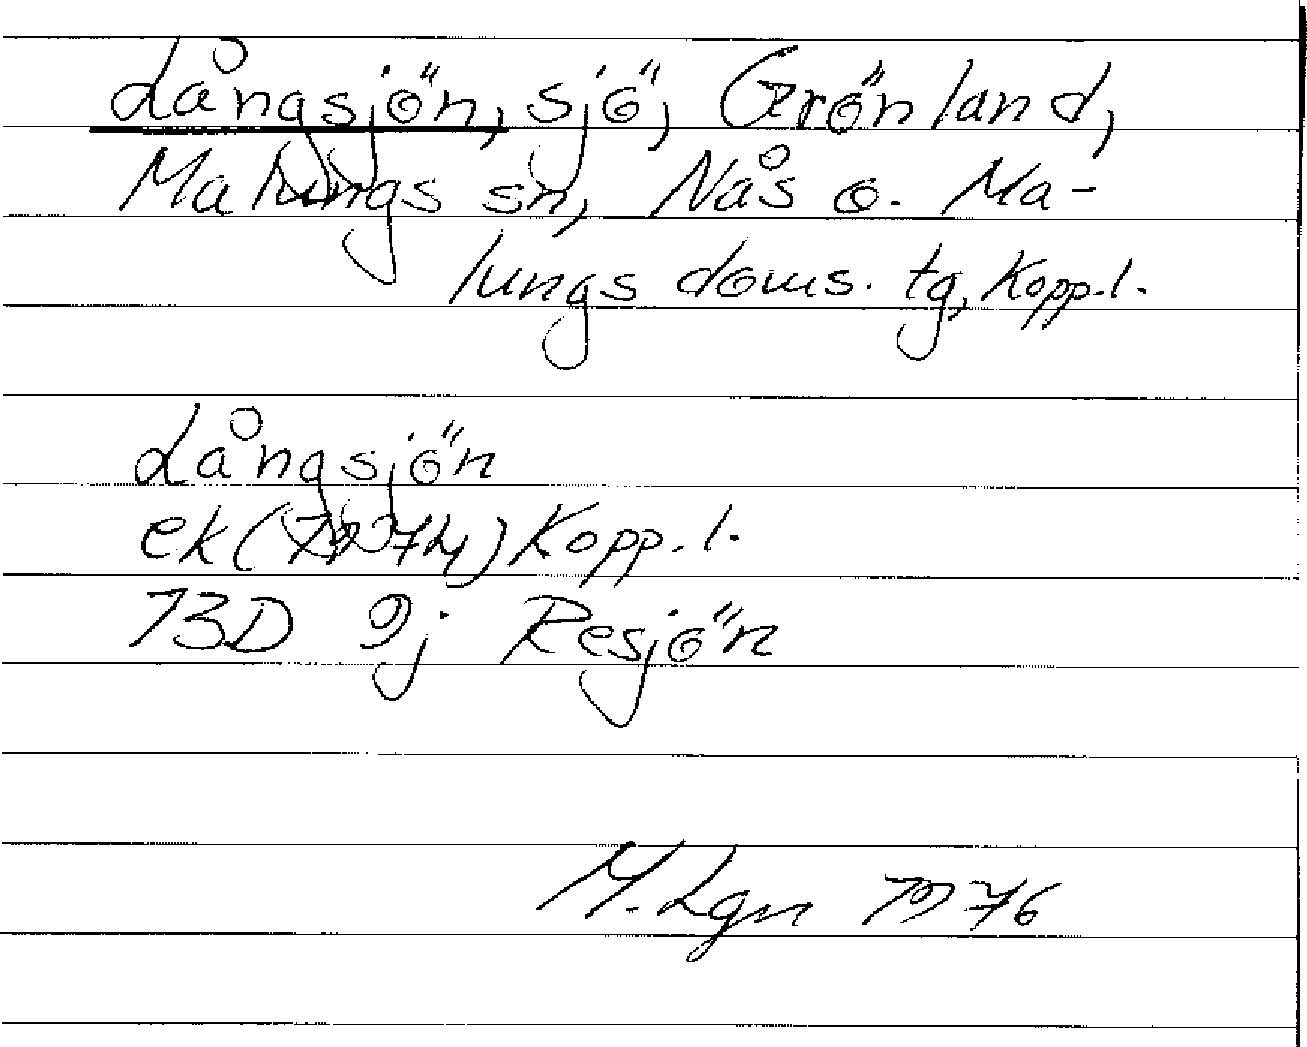 Långsjön, sjö, Grönland,
Malungs sn, Nås o. Ma-
lungs doms. tg, Kopp.l.
Långsjön
ek (1974) Kopp.l.
13D 9j Resjön
M. Lgn 1976